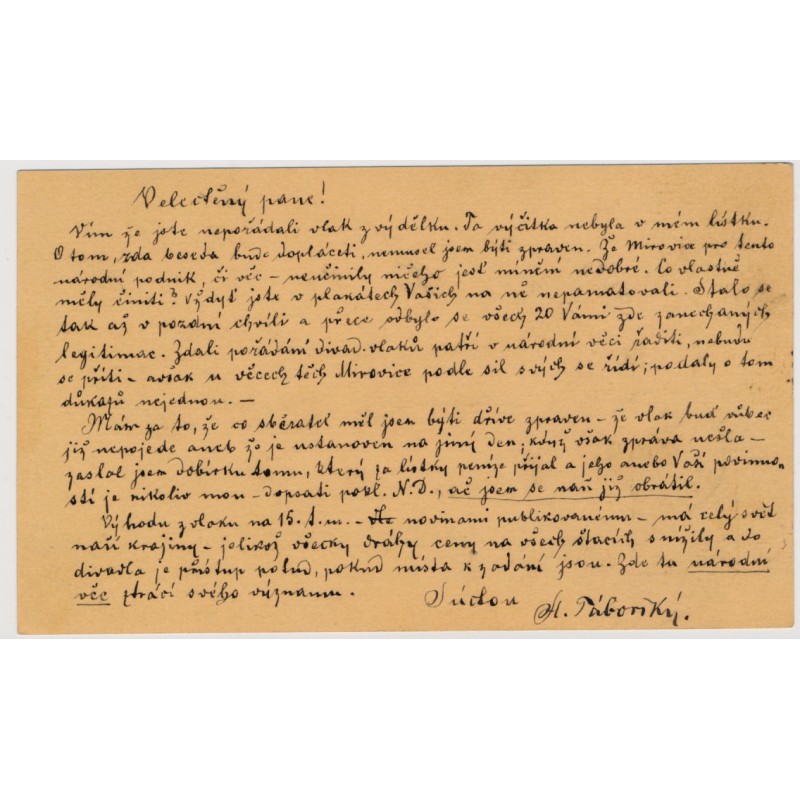 Velectěný pane!
Vím že jste nepořádali vlak z výdělku. Ta výčitka nebyla v mém lístku.
O tom, zda beseda bude dopláceti, nemusel jsem býti zpraven. Že Mirovice pro tento
národní podnik, či věc – neučinily ničeho jest mínění nedobré. Co vlastně
měly činiti? Vždyť jste v plakátech Vašich na ně nepamatovali. Stalo se
tak až v pozdní chvíli a přece odbylo se všech 20 Vámi zde zanechaných
legitimac. Zdali pořádání divad. vlaků patří v národní věci řaditi, nebudu
se příti – avšak u věcech těch Mirovice podle sil svých se řídí; podaly o tom
důkazů nejednou. –
Mám za to, že co sběratel měl jsem býti dříve zpraven – že vlak buď vůbec
již nepojede aneb že je ustanoven na jiný den; když však zpráva nešla –
zaslal jsem dobírku tomu, který za lístky peníze přijal a jeho anebo Vaší povinno-
stí je nikoliv mou – dopsati pokl. N.D., ač jsem se naň již obrátil.
Výhodu z vlaku na 15. t. m. – novinami publikovanému – má celý svět
naší krajiny – jelikož všecky dráhy ceny na všech štacích snížily a do
divadla je přístup potud, pokud místa k zadání jsou. Zde tu národní
věc ztrácí svého významu. S úctou
Táborský.